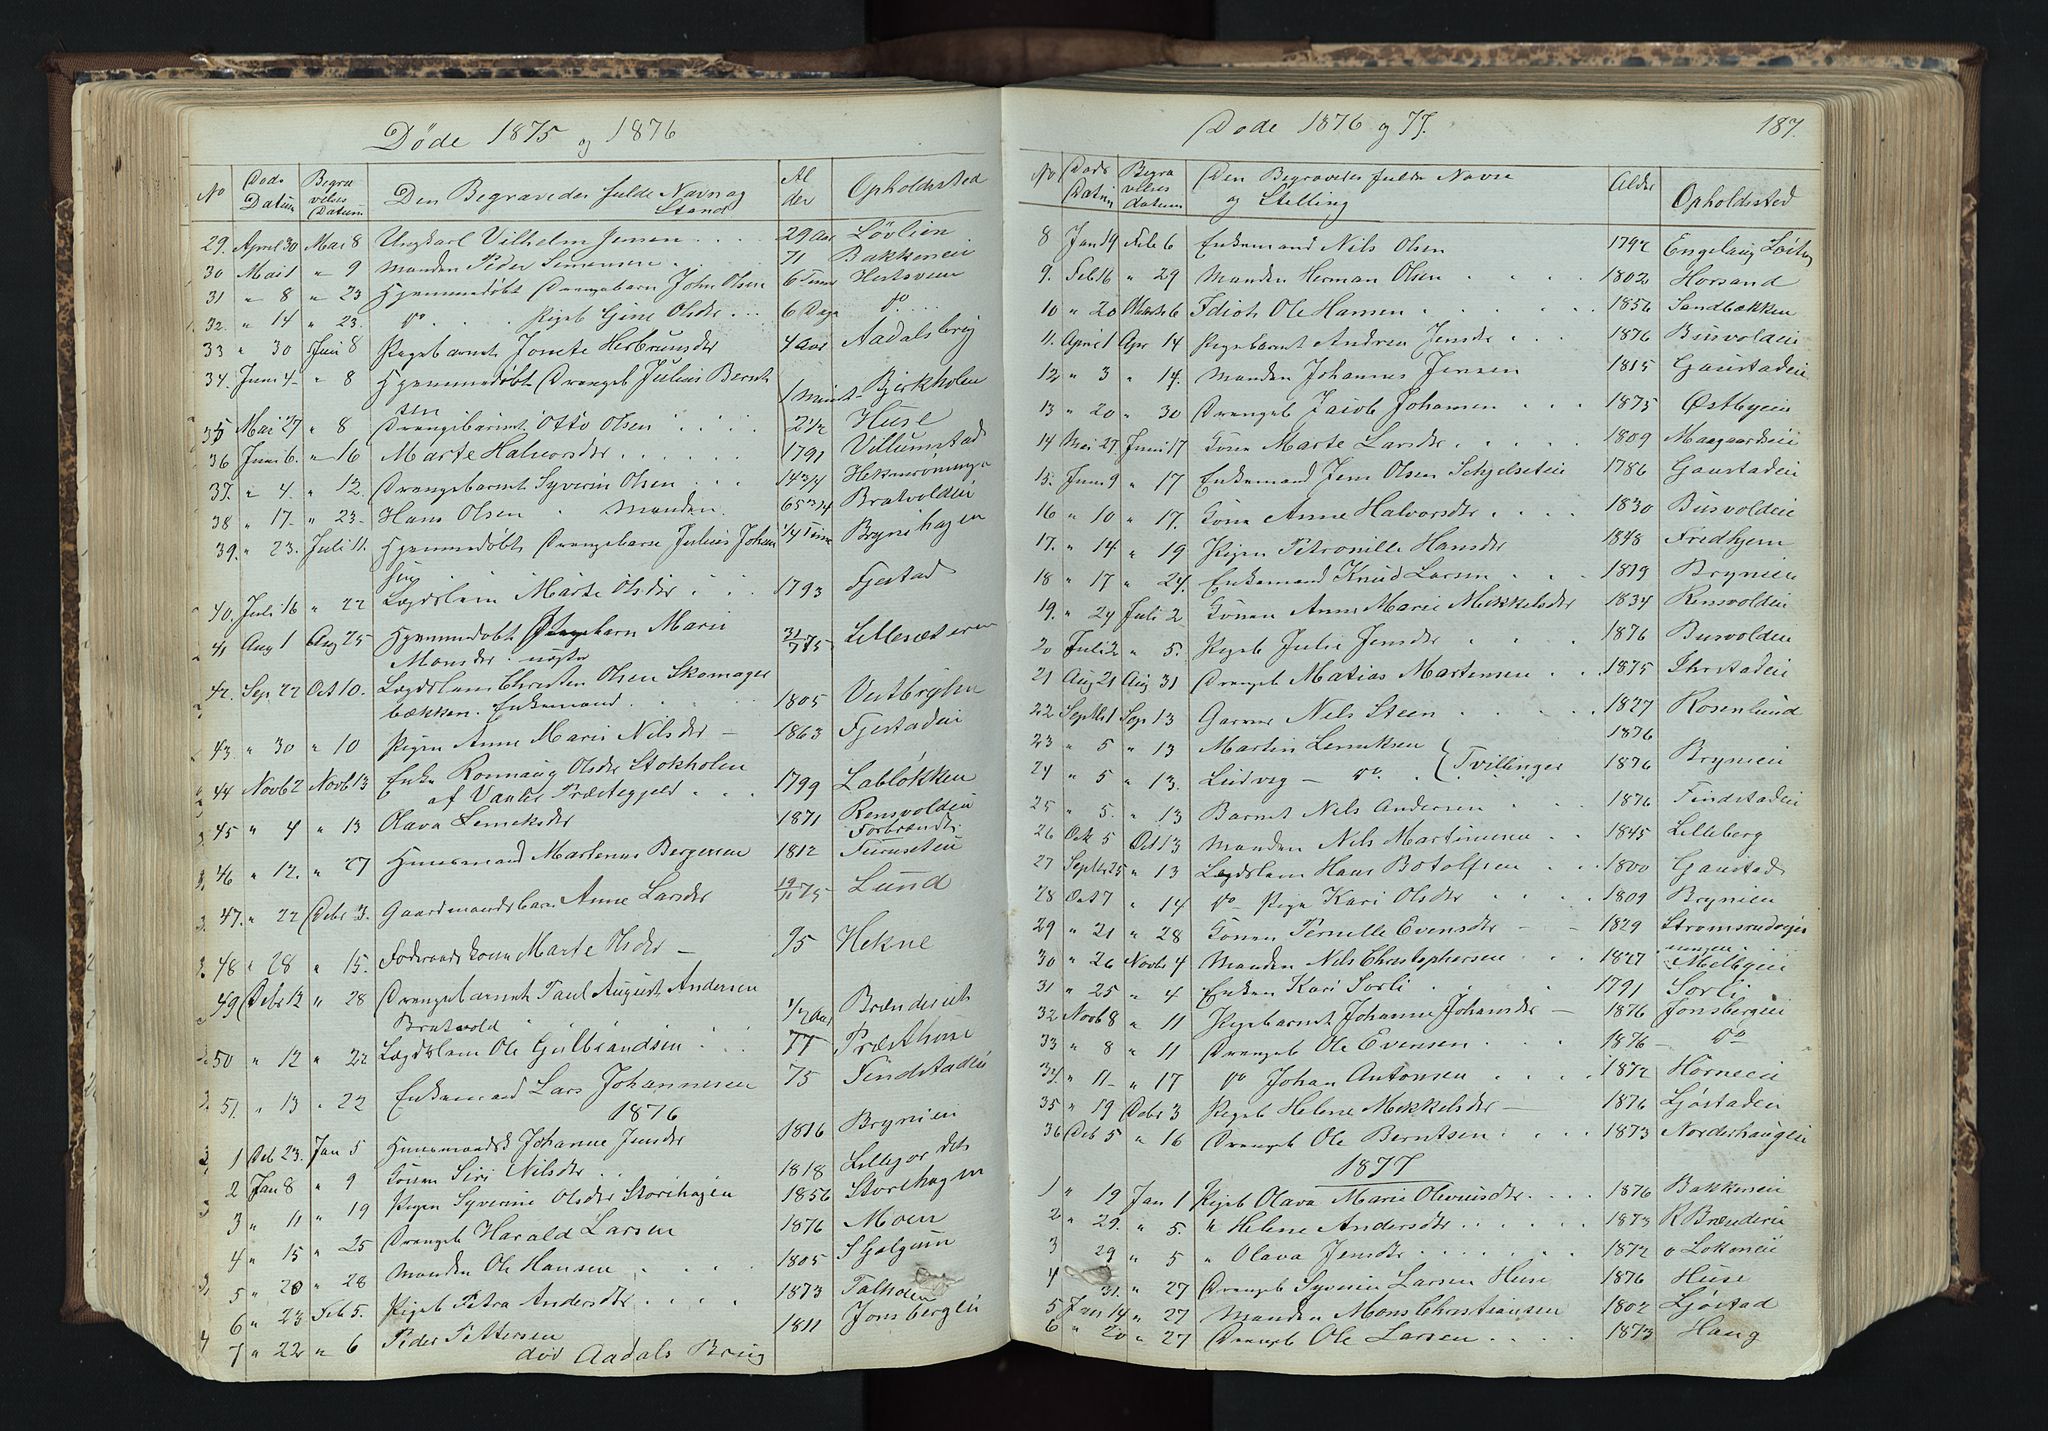 Døde 1875 og 1876
No Døds Datum Begravelses Datum Den Begravedes fulde Navn og Stand Alder Opholdssted
29. April 30 Mai 8 Ungkarl Vilhelm Jensen 29 Aar Løvlien
30 Mai 1 " 9 Manden Peder Simensen 71 Bakkeneie
31 " 8 " 23 Hjemmedøbt Drengebarn John Olsen 6 Timer
32. " 14 " 23. do Pigeb Gine Olsdr 6 Dage do
33 " 30 Juni 8 Pigebarnet 4 Aar Aadalsbrug
34. Juni 4 " 8 Hjemmedøbt Drengeb Julius Bernt
sen 1 Minut Bjerkholen
35 Mai 27 " 8 Drengebarnet Otto Olsen 2 1/2 Huse
36 Juni 6. " 16 Marte Halvorsdr 1791 Villumstad
37. " 4. " 12. Drengebarnet Syverin Olsen 14 3/4
38 " 17. " 23. Hans Olsen Manden 65 3/4 Bratvoldeie
39. " 23. Juli 11. Hjemmedøbt Drengebarn Julius Johan
sen 1/4 Time Brynihagen
40. Juli 16 " 22 Lægdslem Marte Olsdr 1793 Fjestad
41 Aug 1 Aug 25 Hjemmedøbt Pigebarn Marie
Monsdr. uægte 31/7 75 Lillesæteren
42. Sep 22 Oct 10. Lægdslem Christen Olsen Skomager
bækken. Enkemand 1805
43 " 30 " 10 Pigen Anne Marie Nilsdr 1863 Fjestadeie
44 Novb 2 Novb 13 Enke Ronnaug Olsdr Stokholen
af Vanlse Præstegjeld 1799 Labløkken
45 " 4 " 13 Olava Lemeksdr 1871 Rensvoldeie
Forbrændt
46 " 12. " 27 Huusmand Martenus Bergersen 1812 Furuseteie
47. " 22 Debr 3. Gaardmandsbarn Anne Larsdr 19/11 75 Lund
48 " 28 " 15. Føderaadskone Marte Olsdr 95 Hekne
49 Debr 12 " 28 Drengebarnet Paul August Andersen
Bratvold 1/2 Aar
50 " 12 " 22 Lægdslem Ole Gulbrandsen 77 Præsthuse
51. " 13 " 22 Enkemand Lars Johannesen 75 Findstadeie
1876
1 Deb 23. Jan 5 Huusmandsk Johanne Jensdr 1816 Brynieie
2 Jan 8 " 9 Konen Siri Nilsdr 1818
3 " 11 " 19 Pigen Syverine Olsdr Storihagen 1856 Storihagen
4 " 15 " 25 Drengeb Harald Larsen 1876 Moen
5 " 20 " 28 Manden Ole Hansen 1805
6 " 23 Feb 5. Pigeb Petra Andersdr 1873
7 " 22 " 6 Peder Pettersen 1811 Jonsbergeie
død Aadals Brug
Døde 1876 og 77. 187.
No Døds Datum Begravelses datum Den Begravedes fulde Navn og Stelling Alder Opholdssted
8 Jan 19 Feb 6 Enkemand Nils Olsen 1792 Engelaug Løiten
9. Feb 16 " 29 Manden Herman Olsen 1802 Horsand
10 " 20 Marts 6 Idiot Ole Hansen 1856 Sandbækken
11. April 1 Apr 14 Pigebarnet Andrea Jensdr 1876 Busvoldeie
12 " 3 " 14. Manden Johannes Jensen 1815 Gaustadeie
13 " 20 " 30 Drengeb Jacob Johansen 1875 Østbyeie
14 Mai 27 Juni 17 Kone Marte Larsdr 1809 Maagaardeie
15. Juni 9 " 17 Enkemand Jens Olsen 1786 Gaustadeie
16 " 10 " 17. Kone Anne Halvorsdr 1830 Busvoldeie
17. " 14 " 19 Pigen Petronille Hansdr 1848 Fredhjem
18 " 17 " 24. Enkemand Knud Larsen 1819 Brynieie
19. " 24 Juli 2 Konen Anne Marie Mekkelsdr 1834 Rensvoldeie
20 Juli 2 " 5. Pigeb Julie Jensdr 1876 Busvoldeie
21 Aug 21 Aug 31 Drengeb Matias Martensen 1875
22 Septb 1 Sep 13 Garver Nils Steen 1827 Rosenlund
23 " 5 " 13 Martin Lemeksen 1876
24 " 5 " 13. Ludvig do Tvillinger 1876 Brynieie
25 " 5. " 13 Barnet Nils Andersen 1876 Findstadeie
26 Oct 5 Oct 13 Manden Nils Martinusen 1845 Lilleberg
27 Septbr 25 " 13 Lægdslem Hans Botolfsen 1800 Gaustad
28 Oct 7 " 14 do Pige Kari Olsdr 1809 Brynieie
29 " 21 " 28 Konen Pernille Evensdr 1829
30 " 26 Novbr 4 Manden Nils Christophersen 1827 Melbyeie
31 " 25 " 4 Enken Kari Sorli 1791 Sorli
32 Novb 8 " 11 Pigebarnet Johanne Johansdr 1876 Jonsbergeie
33 " 8 " 11 Drengeb Ole Evensen 1876 do
34. " 11 " 17 do Johan Antonsen 1872 Horneeie
35 " 19 Debr 3 Pigeb Helene Mekkelsdr 1876 Ljøstadeie
36 Deb 5 " 16 Drengeb Ole Berntsen 1873 Norderhaugeie
1877
1 " 19 Jan 1 Pigeb Olava Marie Olevusdr 1876 Bakkeneie
2 " 29. " 5. " Helene Andersdr 1873
3 29 " 5 " Olava Jensdr 1872
4 31. " 27 Drengeb Syverin Larsen Huse 1876 Huse
5 Jan 14 " 27 Manden Mons Christiansen 1802 Ljøstad
6 " 20 " 27 Drengeb Ole Larsen 1873 Haug